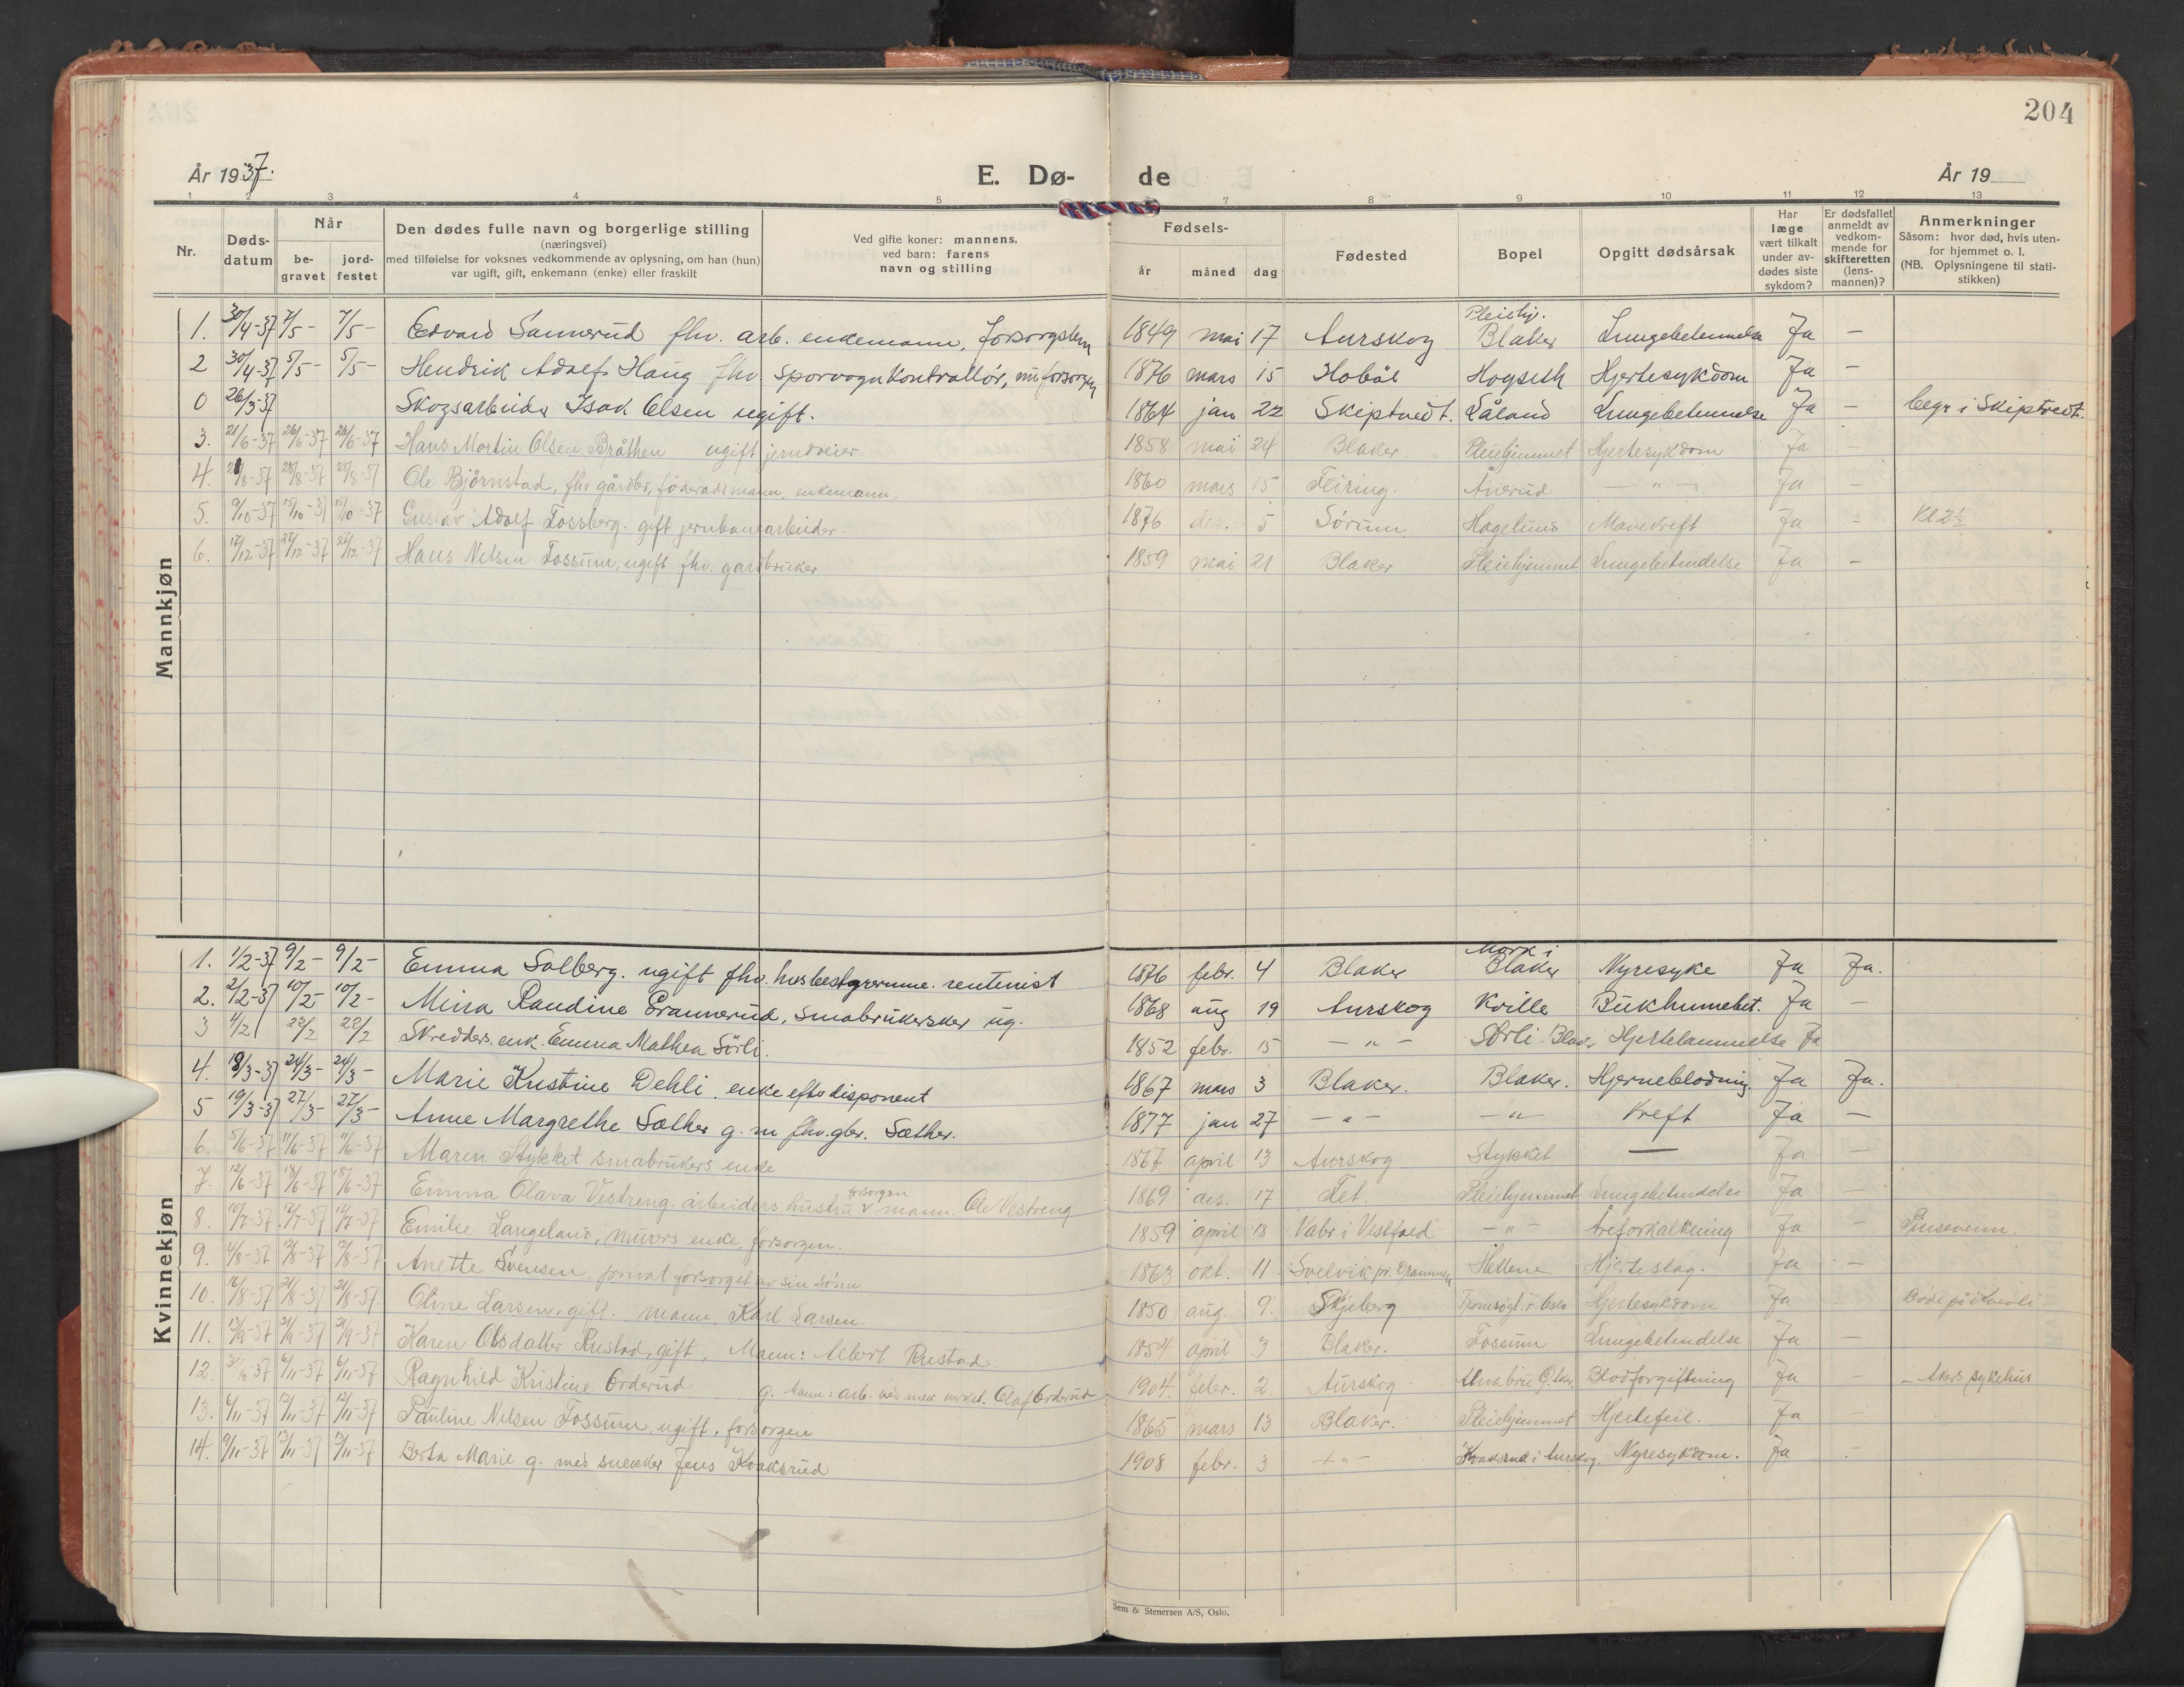 204
År 1937.
E. Dø- de
År 19
1 2 3 4 5 7 8 9 10 11 12 13
Nr.
Dødsdatum
Når
begravet
jordfestet
Den dødes fulle navn og borgerlige stilling
(næringsvei)
med tilføielse for voksnes vedkommende av oplysning, om han (hun)
var ugift, gift, enkemann (enke) eller fraskilt
Ved gifte koner: mannens,
ved barn: farens
navn og stilling
Fødsels-
år måned dag
Fødested
Bopel
Opgitt dødsårsak
Har
læge
vært tilkalt
under av-
dødes siste
sykdom?
Er dødsfallet
anmeldt av
vedkom-
mende for
skifteretten
(lens-
mannen)?
Anmerkninger
Såsom: hvor død, hvis uten-
for hjemmet o. l.
(NB. Oplysningene til stati-
stikken)
Mannkjøn
1. 30/4-37 7/5- 7/5- Edvard Sannerud fhv. arb. enkemann, forsorgslem 1849 mai 17 Aurskog Pleiehj. Blaker Lungebetennelse Ja -
2 30/4-37 5/5- 5/5- Hendrik Adolf Haug fhv. sporvognkontrollør, nu forsorgen 1876 mars 15 Hobøl Hogseth Hjertesykdom Ja -
0 26/3-37 Skogsarbeider Isak Olsen ugift. 1864 jan 22 Skiptvedt. Låland Lungebetennelse Ja - begr i Skiptvedt.
3. 21/6-37 26/6-37 26/6-37 Hans Martin Olsen Bråthen ugift jerndreier 1858 mai 24 Blaker. Pleiehjemmet Hjertesykdom Ja -
4. 21/8-37 28/8-37 28/8-37 Ole Bjørnstad, fhv gårdbr, føderadsmann, enkemann. 1860 mars 15 Feiring. Ånerud - " - Ja -
5. 9/10-37 15/10-37 15/10-37 Gustav Adolf Fossberg. gift jernbanearbeider. 1876 des. 5 Sørum Hagelund Mavekreft Ja - Kl 2 ½
6. 17/12-37 22/12-37 22/12-37 Hans Nilsen Fossum, ugift fhv. gardbruker 1859 mai 21 Blaker Pleiehjemmet Lungebetendelse Ja -
Kvinnekjøn
1. 1/2-37 9/2- 9/2- Emma Solberg. ugift fhv. husbestyrerinne. rentenist 1876 febr. 4 Blaker Mork i Blaker Nyresyke Ja Ja.
2. 2/2-37 10/2- 10/2- Mina Randine Grannerud, småbrukerske ug. 1868 aug 19 Aurskog Kville Bukhinnebet. Ja -
3 4/2 22/2 22/2 Skredders. enk. Emma Mathea Sørli. 1852 febr. 15 - " - Sørli Blaker Hjertelammelse Ja
4. 18/3-37 24/3- 24/3- Marie Kristine Dehli. enke efter disponent 1867 mars 3 Blaker. Blaker. Hjerneblodning. Ja Ja.
5 19/3-37 27/3- 27/3- Anne Margrethe Sæther g. m fhv. gbr. Sæther. 1877 jan 27 - " - - " - Kreft Ja -
6. 5/6-37 11/6-37 11/6-37 Maren Stykket småbrukers enke 1867 april 13 Aurskog Stykket - Ja -
7. 12/6-37 18/6-37 18/6-37 Emma Olava Vestreng arbeiders hustru forsorgen mann. Ole Vestreng 1869 des. 17 Fet. Pleiehjemmet Lungebetendelse Ja -
8. 10/7-37 17/7-37 17/7-37 Emilie Langeland, murers enke, forsorgen. 1859 april 18 Våle i Vestfold - " - Åreforkalkning Ja - Pinsevenn.
9. 4/8-37 12/8-37 12/8-37 Anette Svensen privat forsorget av sin sønn 1863 okt. 11 Svelvik pr. Drammen Hellene Hjerteslag. Ja -
10. 16/8-37 21/8-37 21/8-37 Oline Larsen, gift. mann, Karl Larsen. 1850 aug. 9. Skjeberg Hjertesykdom Ja -
11. 15/9-37 21/9-37 21/9-37 Karen Olsdatter Rustad, gift, Mann: Albert Rustad 1854 april 3 Blaker. Fossum Lungebetendelse Ja -
12. 31/10-37 6/11-37 6/11-37 Ragnhild Kristine Orderud g. Mann: arb. ved mek verkst. Olaf Orderud 1904. febr. 2 Aurskog Alnabru Ø. Aker Blodforgiftning Ja - - Akers sykehus
13. 6/11-37 12/11-37 12/11-37 Pauline Nilsen Fossum, ugift, forsorgen 1865 mars 13 Blaker. Pleiehjemmet Hjertefeil. Ja -
14. 9/11-37 13/11-37 13/11-37 Berta Marie g. med snekker Jens Kvaksrud 1908 febr. 3 - " - Kvaksrud i Aurskog. Nyresykdom. Ja -
Sem & Stenersen A/S, Oslo.